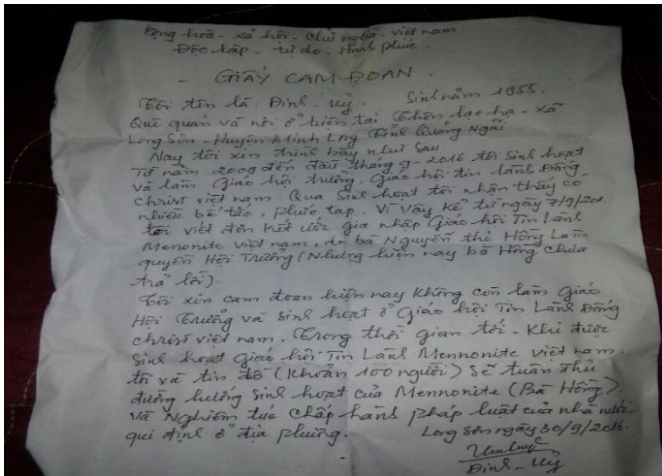 Cộng hoà - xã hội - chủ nghĩa - việt nam.
Độc lập - tự do - Hạnh phúc.
- GIẤY CAM ĐOAN.
Tôi tên là. Đinh - Uỷ. Sinh năm 1955.
Quê quán và nơi ở hiện tại Thôn lạc hạ - xã
Long Sơn - Huyện Minh Long Tỉnh Quảng Ngãi
Nay tôi xin trình bày như sau.
Từ năm 2009 đến đầu tháng 9-2016 tôi sinh hoạt
và làm Giáo hội trưởng. Giáo hội tin lành Đấng
christ việt nam. Qua sinh hoạt tôi nhận thấy có
nhiều bế tắc, phức tạp. Vì vậy kể từ ngày 7/9/201
tôi viết đơn kết ước gia nhập Giáo hội Tin Lành
Mennonite việt nam, do bà Nguyễn thị Hồng Làm
quyền Hội Trưởng (Nhưng hiện nay bà Hồng chưa
trả lời).
Tôi xin cam đoan hiện nay không còn làm Giáo
Hội Trưởng và sinh hoạt ở Giáo hội Tin Lành Đấng
christ việt nam. Trong thời gian tới - Khi được
sinh hoạt Giáo hội Tin Lành Mennonite việt nam.
tôi và tín đồ (Khoản 100 người) Sẽ tuân Thủ
đường hướng sinh hoạt của Mennonite (Bà Hồng)
và Nghiêm túc chấp hành pháp luật của nhà nước.
qui định ở địa phương. Long Sơn ngày 30/9/2016.
Đinh - Uỷ